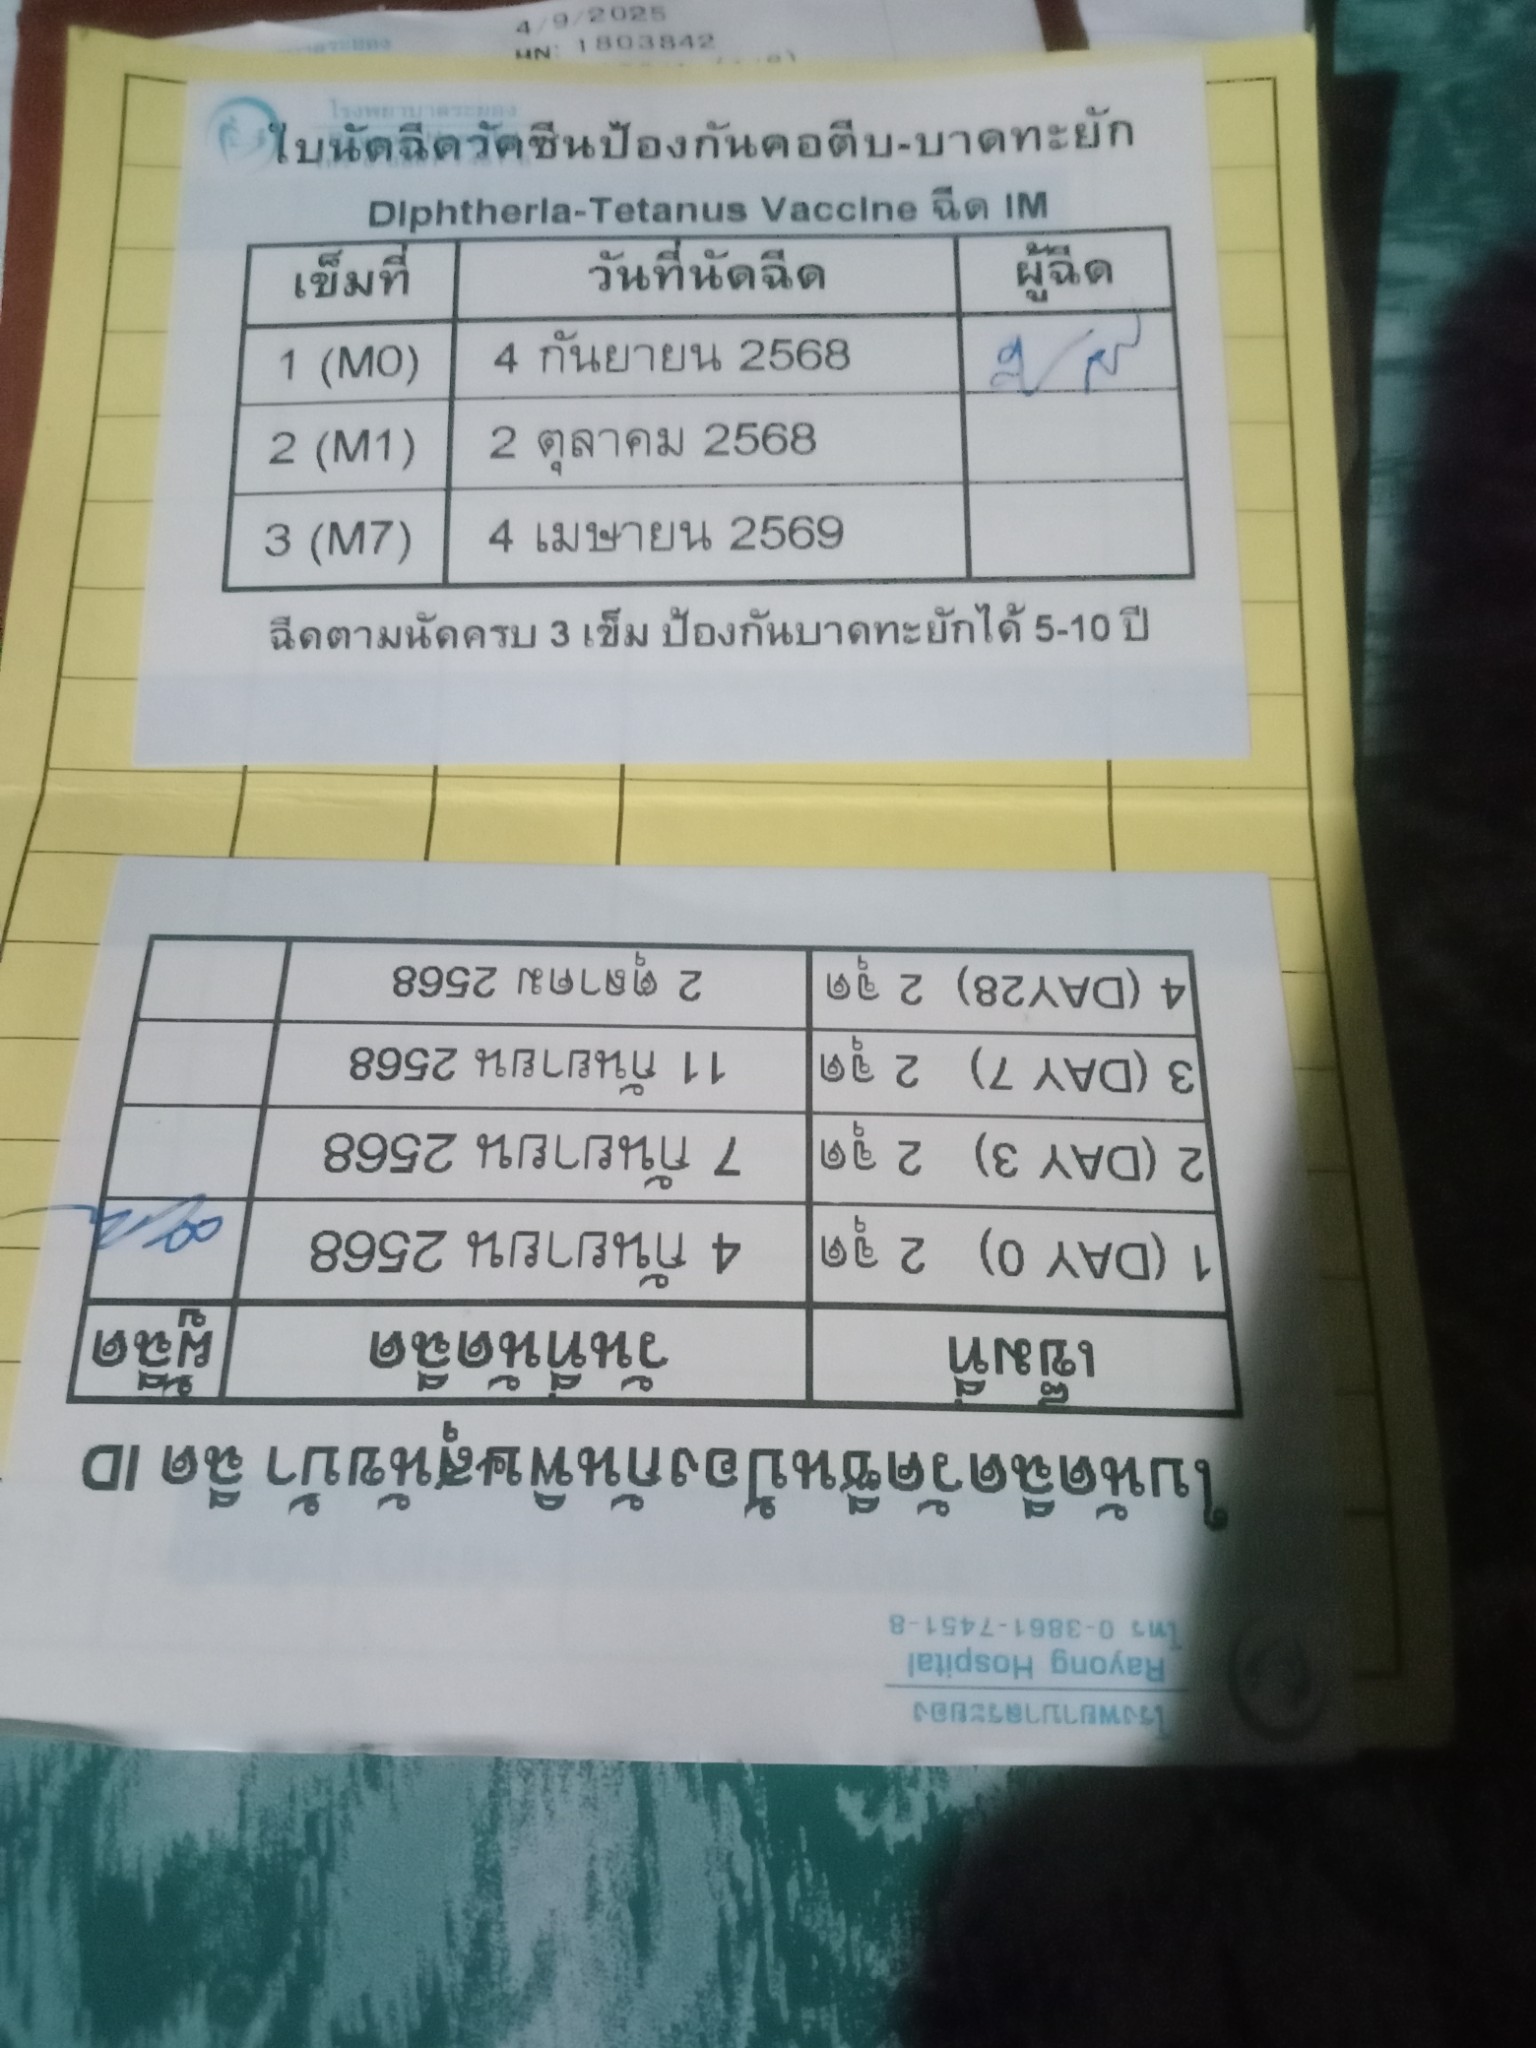 4/9/2025
HN: 1803842
โรงพยาบาลระยอง
ใบนัดฉีดวัคซีนป้องกันคอตีบ-บาดทะยัก
Diphtheria-Tetanus Vaccine ฉีด IM
เข็มที่ วันที่นัดฉีด ผู้ฉีด
1 (M0) 4 กันยายน 2568
2 (M1) 2 ตุลาคม 2568
3 (M7) 4 เมษายน 2569
ฉีดตามนัดครบ 3 เข็ม ป้องกันบาดทะยักได้ 5-10 ปี
โรงพยาบาลระยอง
Rayong Hospital
โทร 0-3861-7451-8
ใบนัดฉีดวัคซีนป้องกันพิษสุนัขบ้า ฉีด ID
เข็มที่ วันที่นัดฉีด ผู้ฉีด
1 (DAY 0) 2 จุด 4 กันยายน 2568
2 (DAY 3) 2 จุด 7 กันยายน 2568
3 (DAY 7) 2 จุด 11 กันยายน 2568
4 (DAY28) 2 จุด 2 ตุลาคม 2568